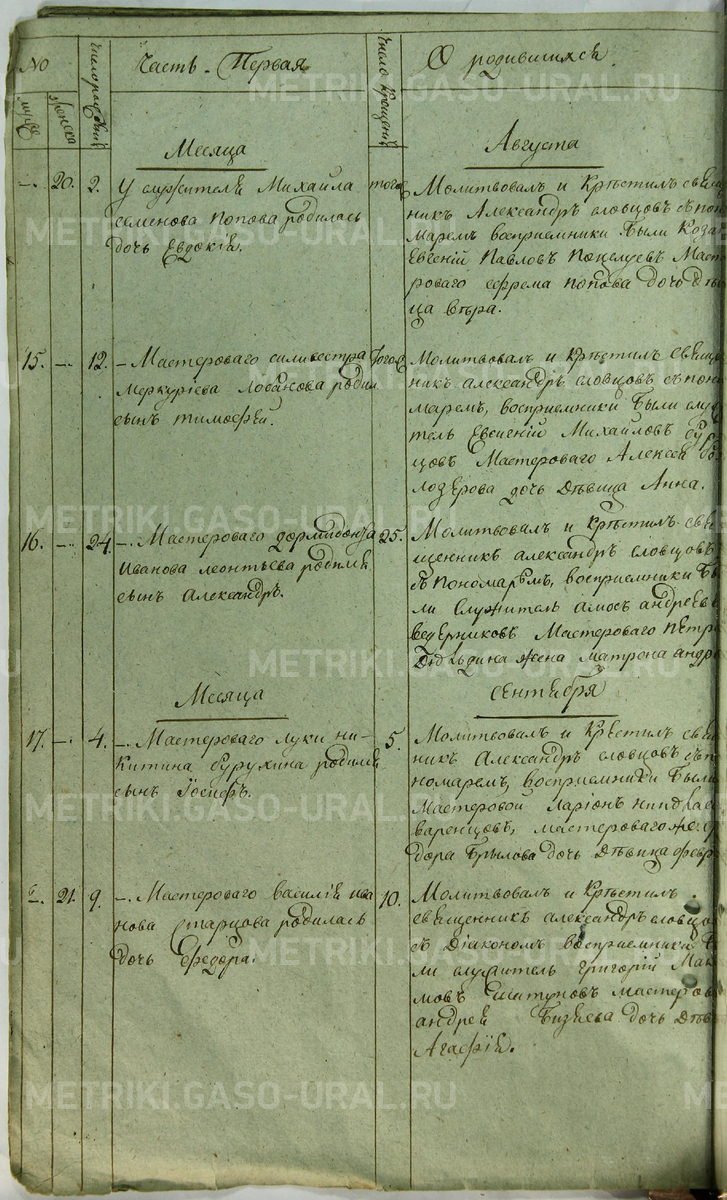 No
Часть. Первая
О родившихся
число рождения
число крещения
мужеска
женска
Месяца
Августа
20. 2. У служителя Михаила
семенова попова родилась
дочь Евдокия.
того
Молитвовалъ и крѣстилъ свяще
никъ Александръ словцовъ съ поно
маремъ восприемники были Козак
Евгений Павловъ Поцелуевъ Масте
роваго ефрема попова дочь дѣви
ца вѣра.
15. 12. Мастероваго силивестра
Меркуриева Лобанова родил
сынъ тимофей.
того
Молитвовалъ и крѣстилъ свяще
никъ александръ словцовъ съ поно
маремъ, восприемники были служи
тель Евгений Михайловъ бур
цовъ Мастероваго Алексея
лозерова дочь Дѣвица Анна.
16. 24. Мастероваго дормидонта
Иванова леонтьева родился
сынъ Александръ.
25.
Молитвовалъ и крѣстилъ свя
щенникъ александръ словцовъ
съ Пономаремъ, восприемники бы
ли служитель амосъ андреевъ
ведерниковъ Мастероваго Петра
Дедюхина жена матрона андре
Месяца
сентября
17. 4. Мастероваго луки ни-
китина бурухина родился
сынъ Иосифъ.
5.
Молитвовалъ и Крѣстилъ свяще
никъ Александръ словцовъ съ по
номаремъ, восприемники были
Мастеровой Ларионъ
варенцовъ, мастероваго
дора Брылова дочь Дѣвица февр
21. 9. Мастероваго василия ива
нова старцова родилась
дочь Федора.
10.
Молитвовалъ и крѣстилъ
священникъ александръ словцо
съ Диакономъ восприемники бы
ли служитель григорий Мак
мовъ Шатуновъ мастерова
андрея Бизяева дочь Дѣви
Агафия.
METRIKI.GASO-URAL.RU
METRIKI.GASO-URAL.RU
METRIKI.GASO-URAL.RU
METRIKI.GASO-URAL.RU
METRIKI.GASO-URAL.RU